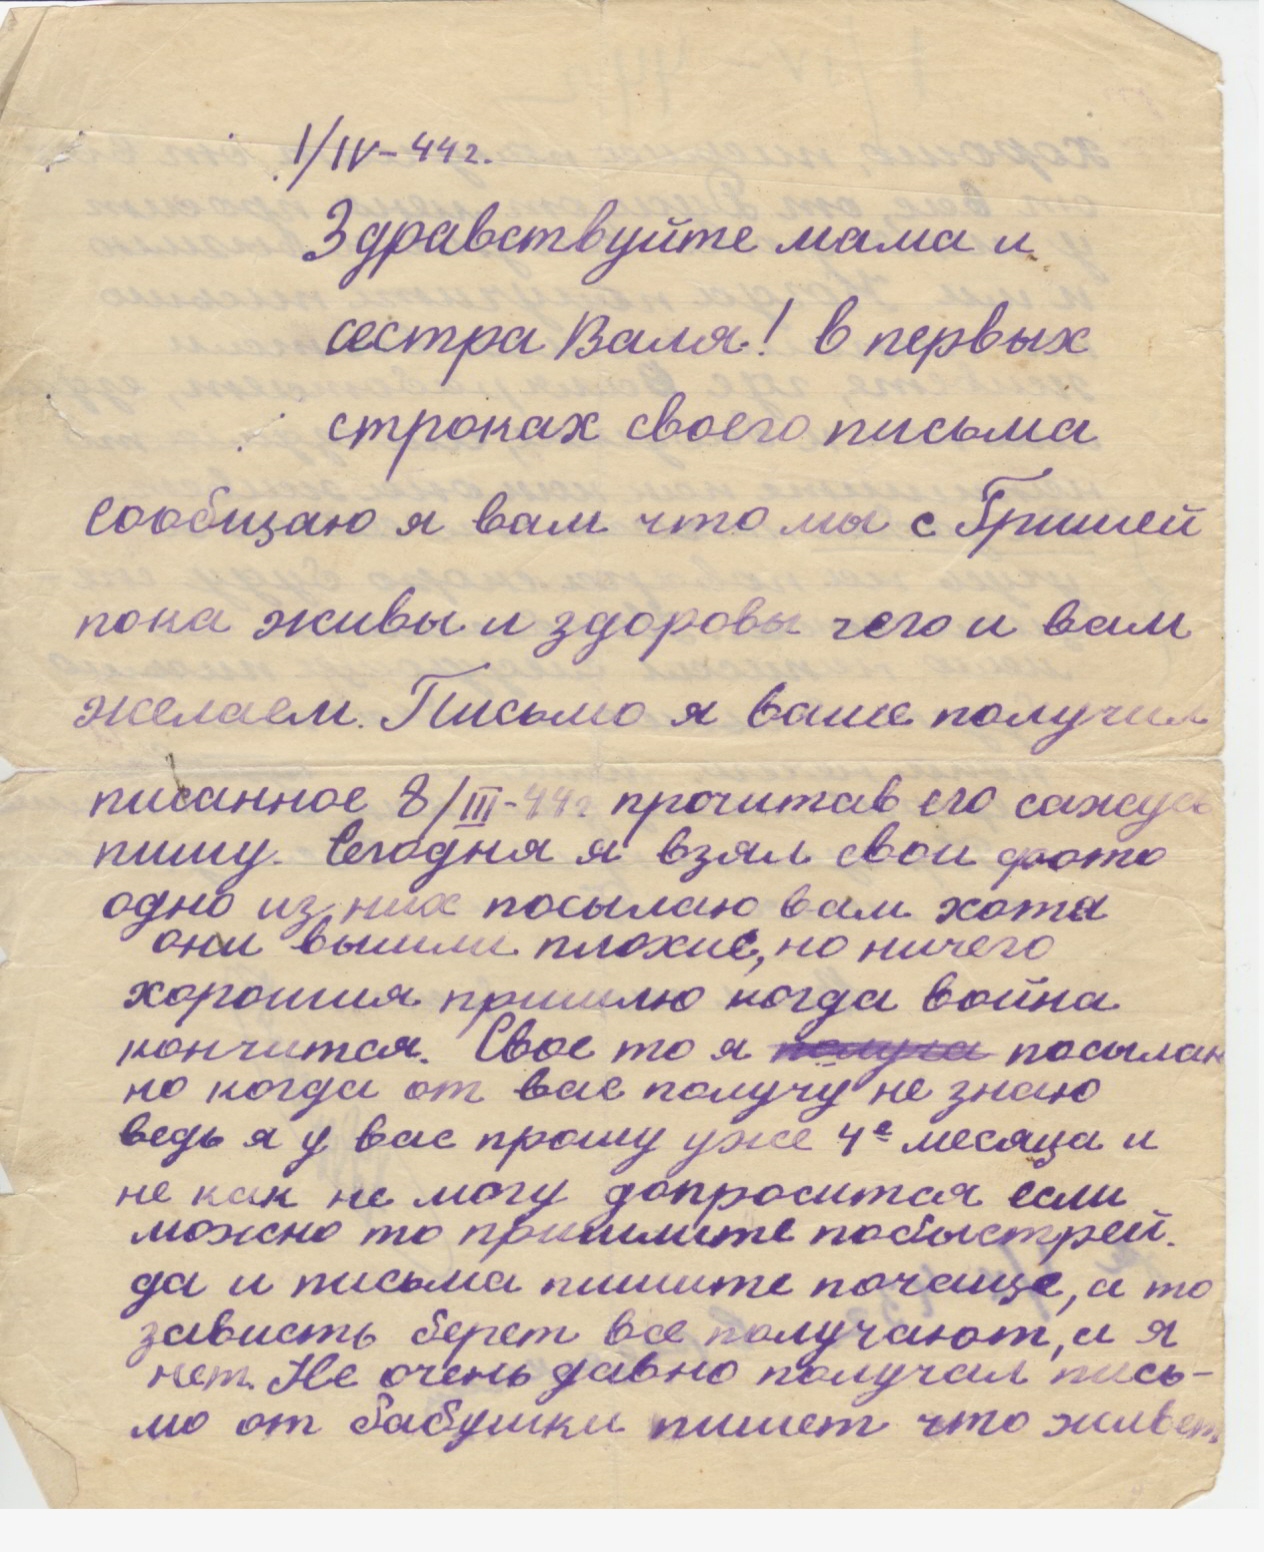 1/IV-44 г.
Здравствуйте мама и
сестра Валя! в первых
строках своего письма
сообщаю я вам что мы с Гришей
пока живы и здоровы чего и вам
желаем. Письмо я ваше получил
писанное 8/III-44 г прочитав его сажусь
пишу. Сегодня я взял свои фото
одно из них посылаю вам хотя
они вышли плохие, но ничего
хорошия пришлю когда война
кончится. Свое то я получа посылаю
но когда от вас получу не знаю
ведь я у вас прошу уже 4е месяца и
не как не могу допросится если
можно то пришлите побыстрей.
да и письма пишите почаще, а то
зависть берет все получают, а я
нет. Не очень давно получал пись-
мо от бабушки пишет что живет